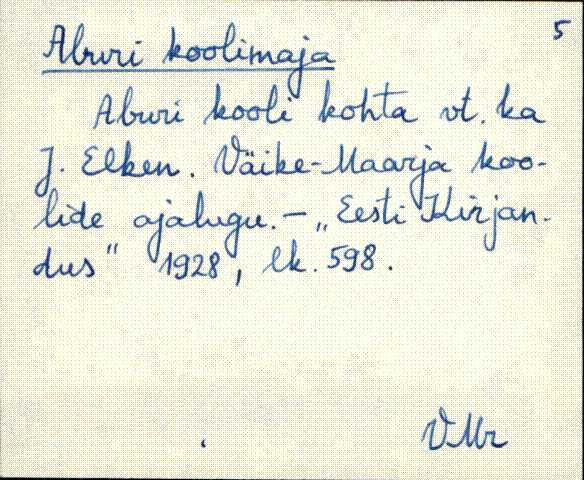 5
Aburi koolimaja
Aburi kooli kohta vt. ka
J. Elken. Väike-Maarja koo-
lide ajalugu. – „Eesti Kirjan-
dus" 1928, lk. 598.
VMr